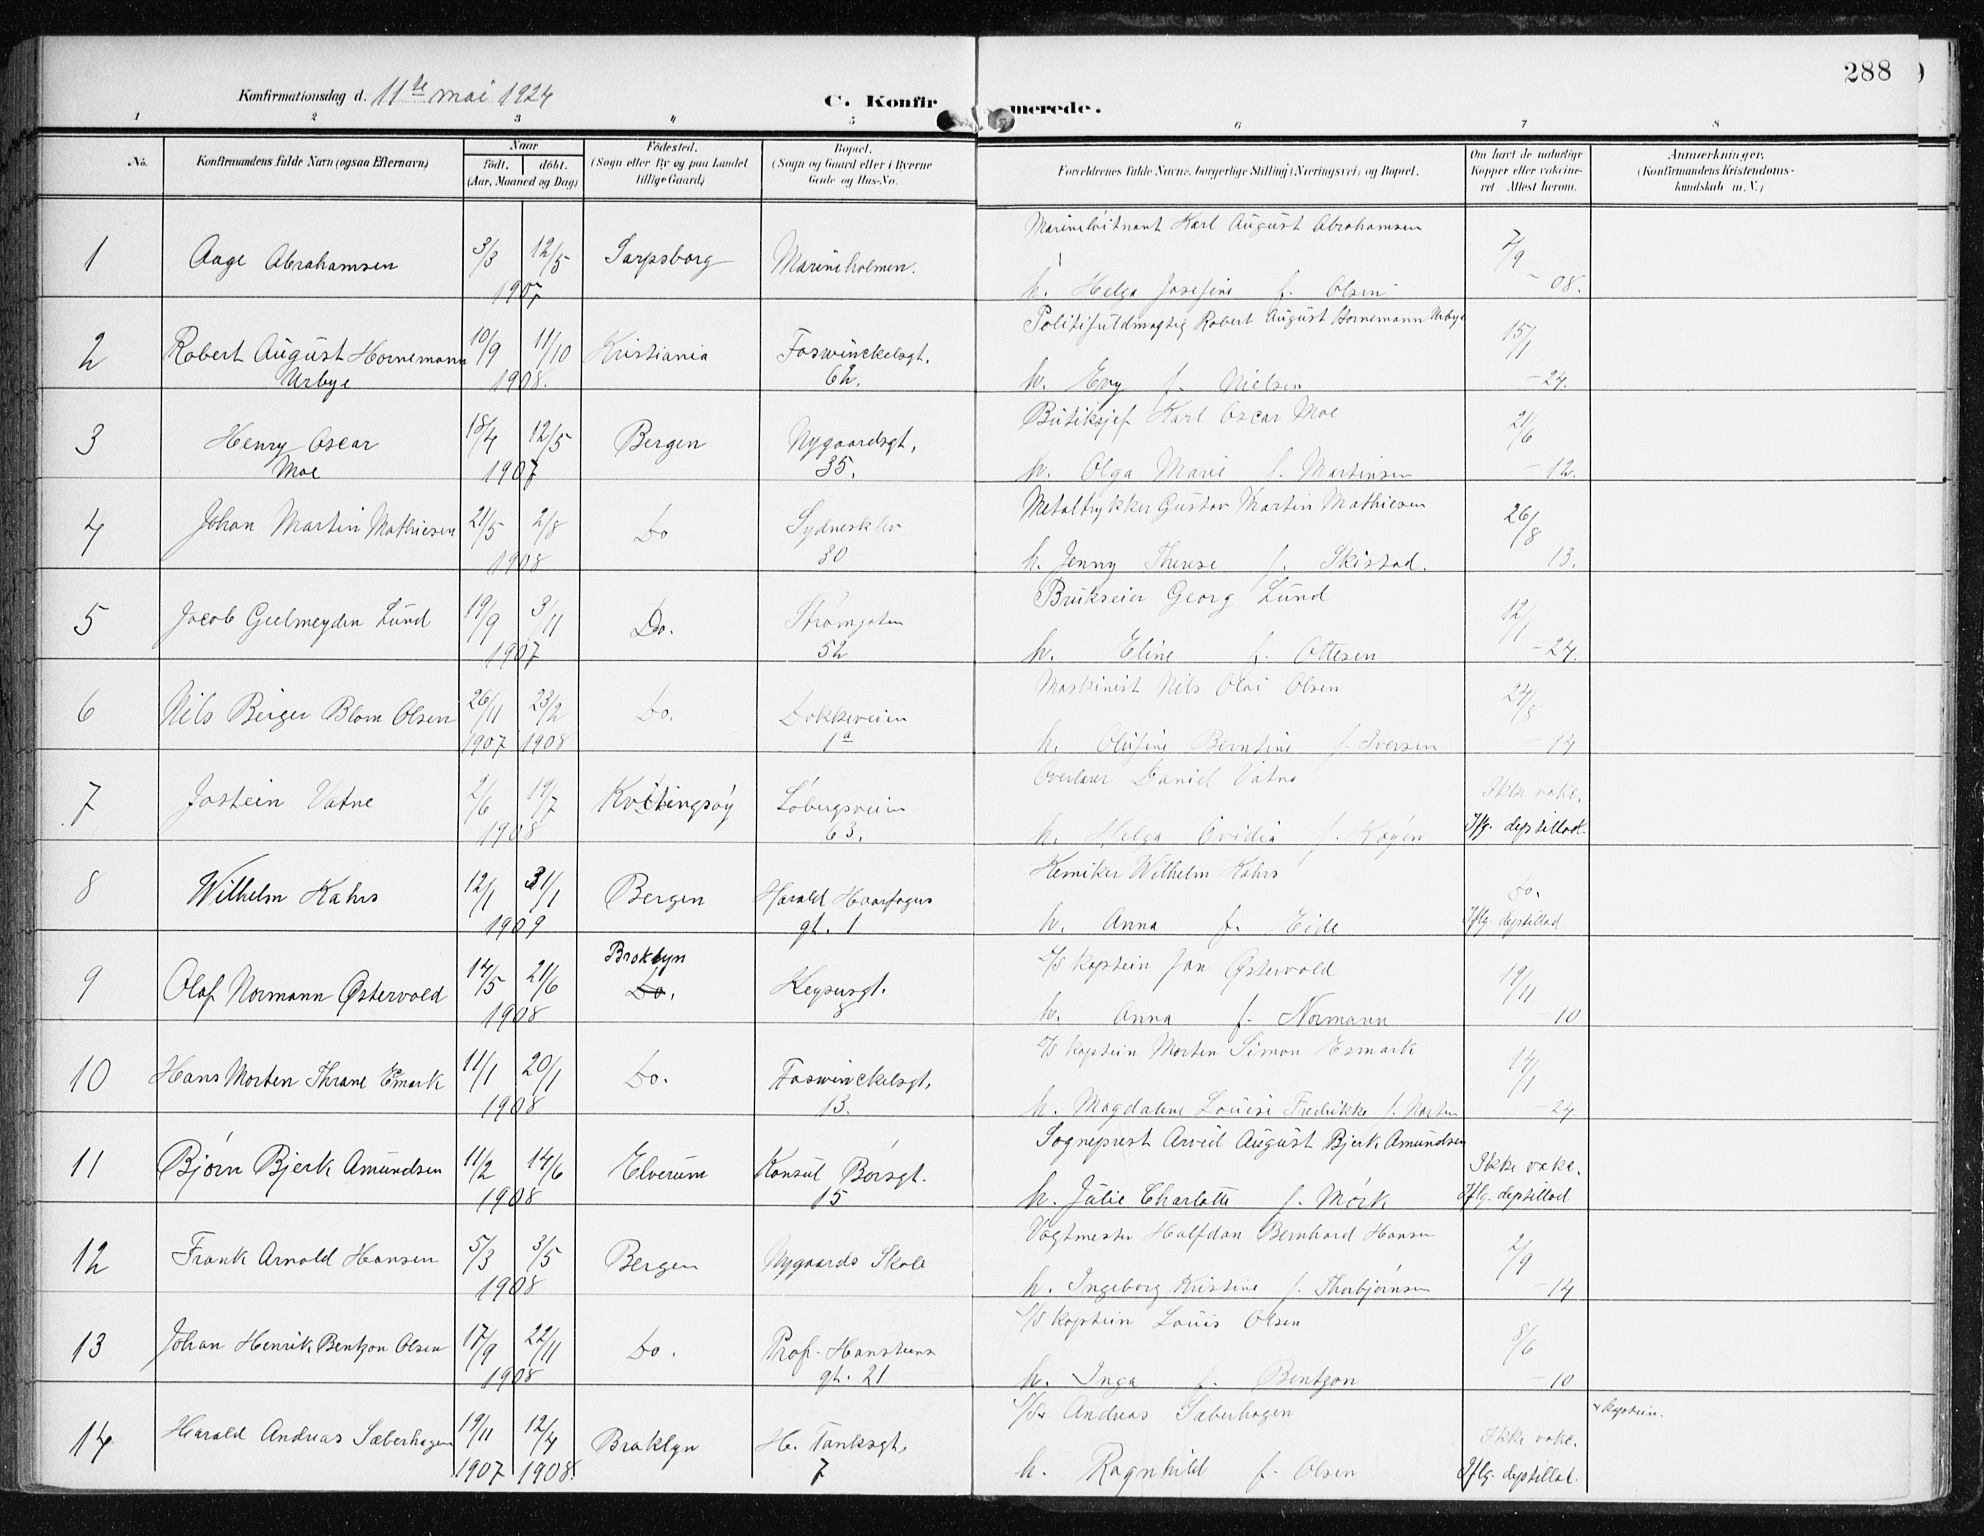 288
Konfirmationsdag d. 11te mai 1924
C. Konfirmerede.
1 2 3 4 5 6 7 8
No.
Konfirmandens fulde Navn (ogsaa Efternavn)
Naar
født. døbt.
(Aar, Maaned og Dag)
Fødested.
(Sogn eller By og paa Landet
tillige Gaard)
Bopæl.
(Sogn og Gaard eller i Byerne
Gade og Hus-No.
Forældrenes fulde Navne, borgerlige Stilling (Næringsvei) og Bopæl.
Om havt de naturlige
Kopper eller vakcine-
ret Attest herom.
Anmerkninger,
(Konfirmandens Kristendoms-
kundskab m. V.)
Marineløitnant Karl August Abrahamsen
1 Aage Abrahamsen 3/3 12/5 Sarpsborg Marineholmen. 7/9
1907 h. Helga Josefine f. Olsen - 08.
Politifuldmægtig Robert August Hornemann Urbye
2 Robert August Hornemann 10/9 11/10 Kristiania Foswinckelsgt. 15/1
Urbye 1908. 62. h. Evy f. Nielsen - 24.
Butiksjef Karl Oscar Moe
3 Henry Oscar 18/4 12/5 Bergen Nygaardsgt. 21/6
Moe 1907 35. h. Olga Marie f. Martinsen - 12.
Metaltrykker Gustav Martin Mathiesen
4 Johan Martin Mathiesen 21/5 2/8 Do Sydnesklev 26/8
1908 30 h. Jenny Therese f. Skistad. 13.
Brukseier Georg Lund
5 Jacob Gulmeyden Lund 19/9 3/11 Do. Strømgaten 12/1
1907 52 h. Eline f. Ottesen - 24.
Maskinist Nils Olai Olsen
6 Nils Berger Blom Olsen 26/11 23/2 Do. Dokkeveien 24/8
1907 1908 1a h. Olufine Berntine f. Iversen - 14
Overlærer Daniel Vatne
7 Jostein Vatne 2/6 19/7 Kvitingsøy Løbergsveien Ikke vakc.
1908 63. h. Helga Ovidia f. Køyen Iflg. deptillad.
Kemiker Wilhelm Kahrs
8 Wilhelm Kahrs 12/1 31/1 Bergen Harald Haarfagers do.
1909 gt. 1 h. Anna f. Eide Iflg. deptillad
Broklyn D/S kaptein Jan Østervold
9 Olaf Normann Østervold 14/5 21/6 Do. Keysersgt. 19/11
1908 8 h. Anna f. Normann - 10
D/S kaptein Morten Simon Esmark
10 Hans Morten Thrane Esmark 11/1 20/1 Do. Foswinckelsgt. 14/1
1908 13. h. Magdalene Louise Fredrikke f. - 24.
Sogneprest Arvid August Bjerk Amundsen
11 Bjørn Bjerk Amundsen 11/2 14/6 Elverum Konsul Børsgt. Ikke vakc.
1908 15 h. Julie Charlotte f. Mørk Iflg. deptillad
Vogtmester Halfdan Bernhard Hansen
12 Frank Arnold Hansen 5/3 3/5 Bergen Nygaards Skole 2/9
1908 h. Ingeborg Kristine f. Thorbjørnsen - 14
S/S kaptein Louis Olsen
13 Johan Henrik Bentzon Olsen 17/9 22/11 Do. Prof. Hansteens 8/6
1908 gt. 21 h. Inga f. Bentzon - 10
S/Sx Andreas Sæberhagen x kaptein.
14 Harald Andreas Sæberhagen 19/11 12/4 Broklyn H. Tanksgt. Ikke vakc.
1907 1908. 7 h. Ragnhild f. Olsen Iflg. deptillad.